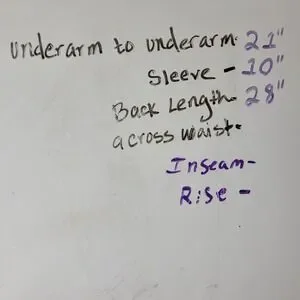 underarm to underarm: 21"
Sleeve - 10"
Back Length- 28"
across waist-
Inseam-
Rise -